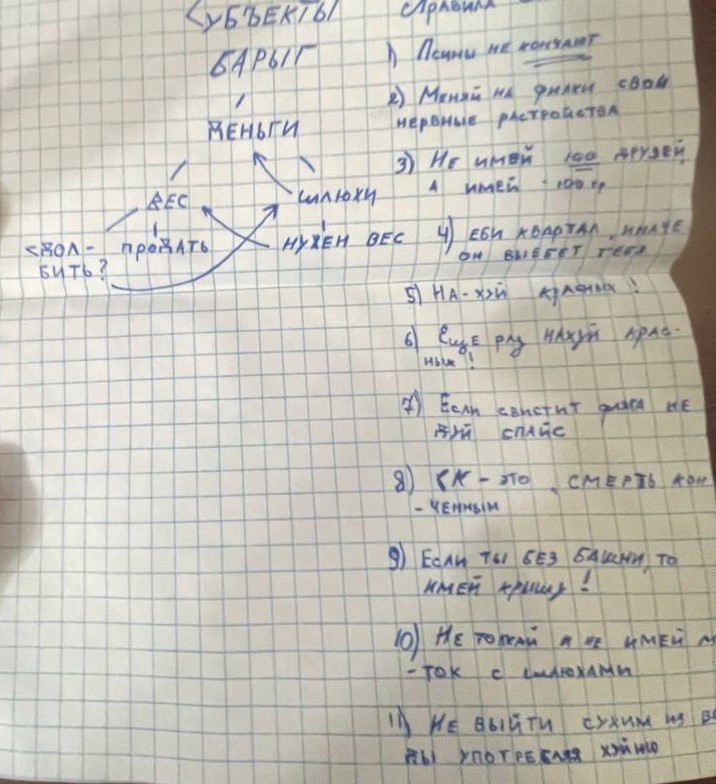 СУБЪЕКТЫ
БАРЫГ
ДЕНЬГИ
ВЕС
ШЛЮХИ
СДОЛ-
БИТЬ?
ПРОДАТЬ
НУЖЕН ВЕС
ПРАВИЛА
1) Псины НЕ КОНЧАЮТ
2) МЕНЯЙ НА ФИЛКИ СВОИ
НЕРВНЫЕ РАСТРОЙСТВА
3) НЕ ИМЕЙ 100 ДРУЗЕЙ
А ИМЕЙ 100 гр
4) ЕБИ КВАРТАЛ, ИНАЧЕ
ОН ВЫЕБЕТ ТЕБЯ
5) НА-ХУЙ КРАСНЫХ!
6) ЕЩЕ РАЗ НАХУЙ КРАС-
НЫХ!
7) ЕСЛИ СВИСТИТ ФЛЯГА НЕ
ДУЙ СПАЙС
8) СК - ЭТО СМЕРТЬ КОН
- ЧЕННЫМ
9) ЕСЛИ ТЫ БЕЗ БАШНИ, ТО
ИМЕЙ КРЫШУ!
10) НЕ ТОЛКАЙ И НЕ ИМЕЙ М
- ТОК С ШЛЮХАМИ
11) НЕ ВЫЙТИ СУХИМ ИЗ ВО
ДЫ УПОТРЕБЛЯЯ ХУЙНЮ